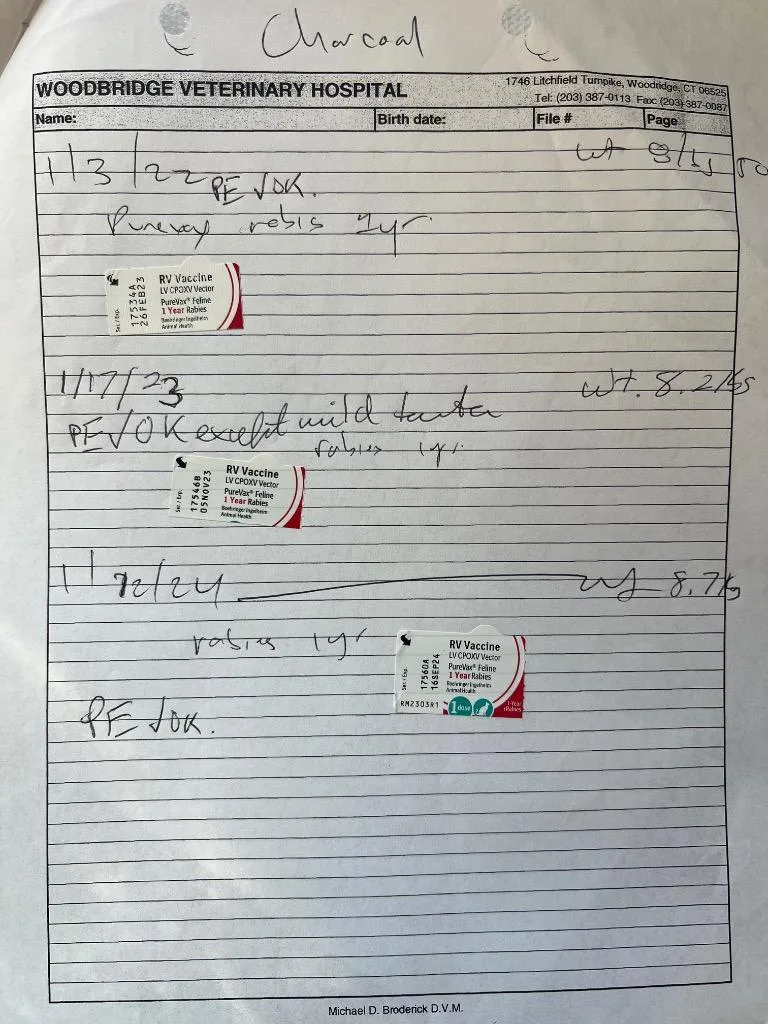 Charcoal
WOODBRIDGE VETERINARY HOSPITAL
1746 Litchfield Turnpike, Woodridge, CT 06525
Tel: (203) 387-0113 Fax: (203) 387-0087
Name: Birth date: File # Page
1/3/22 wt
PE √OK.
Purevax rabis 1yr.
RV Vaccine
LV CPOXV Vector
PureVax® Feline
1 Year Rabies
Boehringer Ingelheim
Animal Health
Ser. / Exp.
17534A
26FEB23
1/17/23 wt. 8.2
PE √OK except mild tartar
rabies 1yr.
RV Vaccine
LV CPOXV Vector
PureVax® Feline
1 Year Rabies
Boehringer Ingelheim
Animal Health
Ser. / Exp.
17546B
05NOV23
1/12/24 wt 8.7
rabies 1yr
RV Vaccine
LV CPOXV Vector
PureVax® Feline
1 Year Rabies
Boehringer Ingelheim
Animal Health
Ser. / Exp.
17560A
16SEP24
RM2303R1 1 dose 1-Year rRabies
PE √OK.
Michael D. Broderick D.V.M.